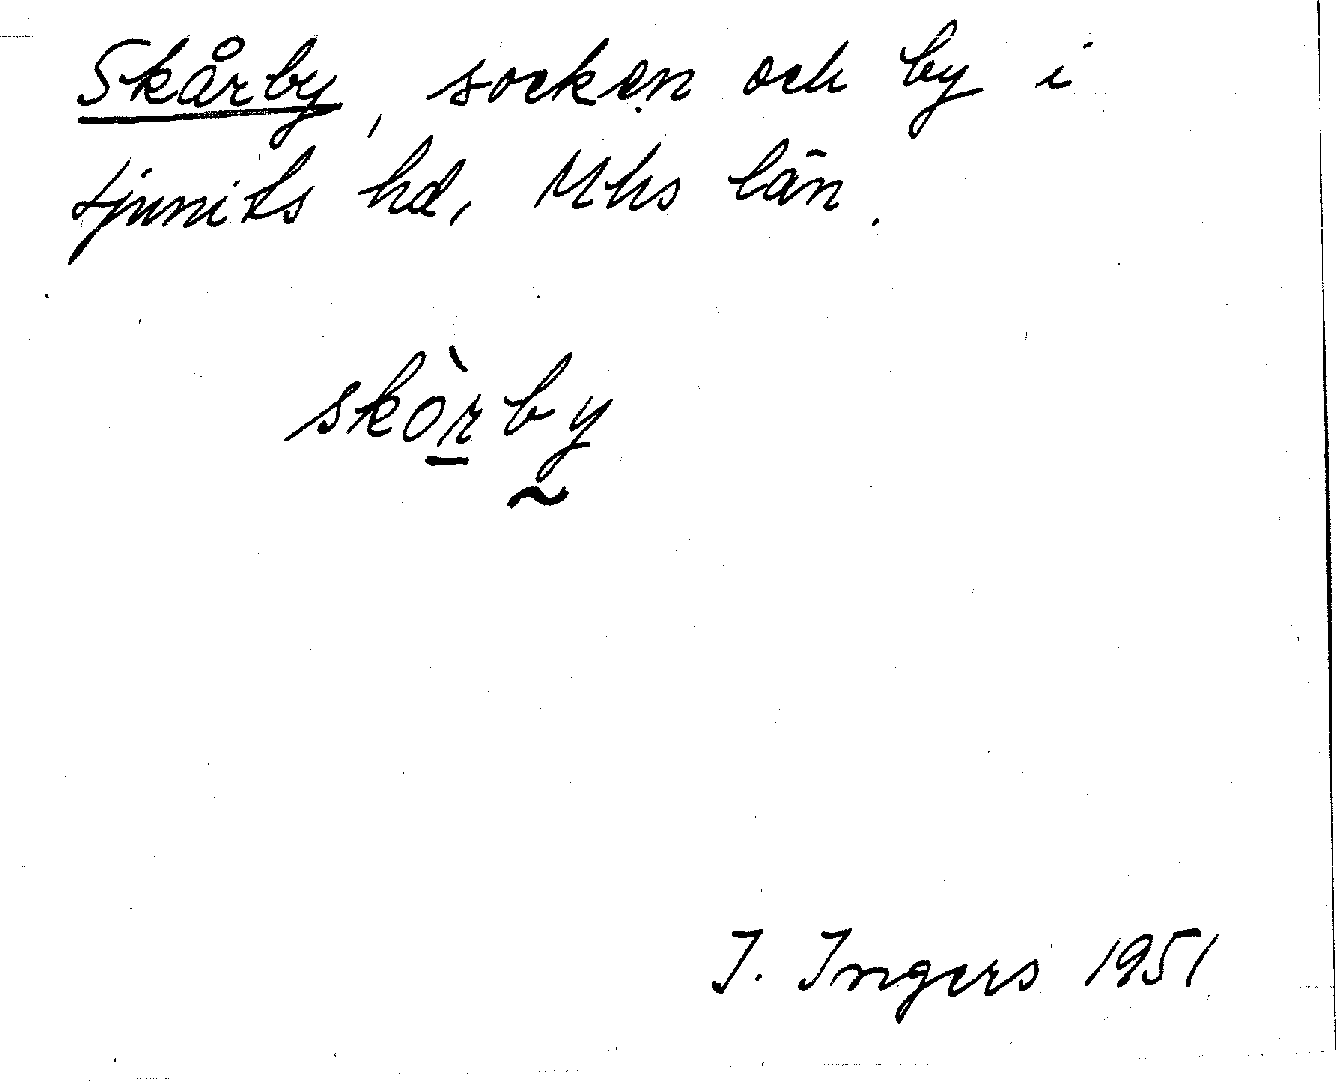 Skårby, socken och by i
Ljunits hd, Mhs län.
skòrby
I. Ingers 1951